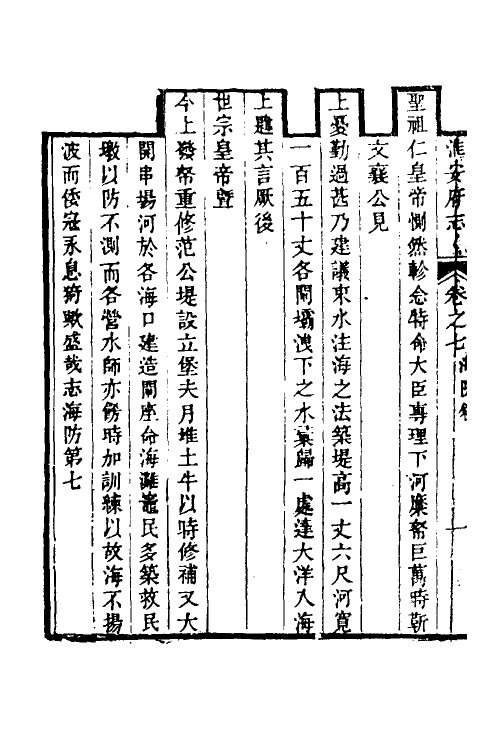 淮安府志 卷之七 海防 一
聖祖仁皇帝惻然軫念特命大臣專理下河糜帑巨萬時靳
文襄公見
上憂勤過甚乃建議束水注海之法築堤高一丈六尺河寛
一百五十丈各閘壩洩下之水彚歸一處達大洋入海
上韙其言厥後
世宗皇帝曁
今上發帑重修范公堤設立堡夫月堆土牛以時修補又大
開串場河於各海口建造閘座命海灘竈民多築救民
墩以防不測而各營水師亦傍時加訓練以故海不揚
波而倭寇永息猗歟盛哉志海防第七